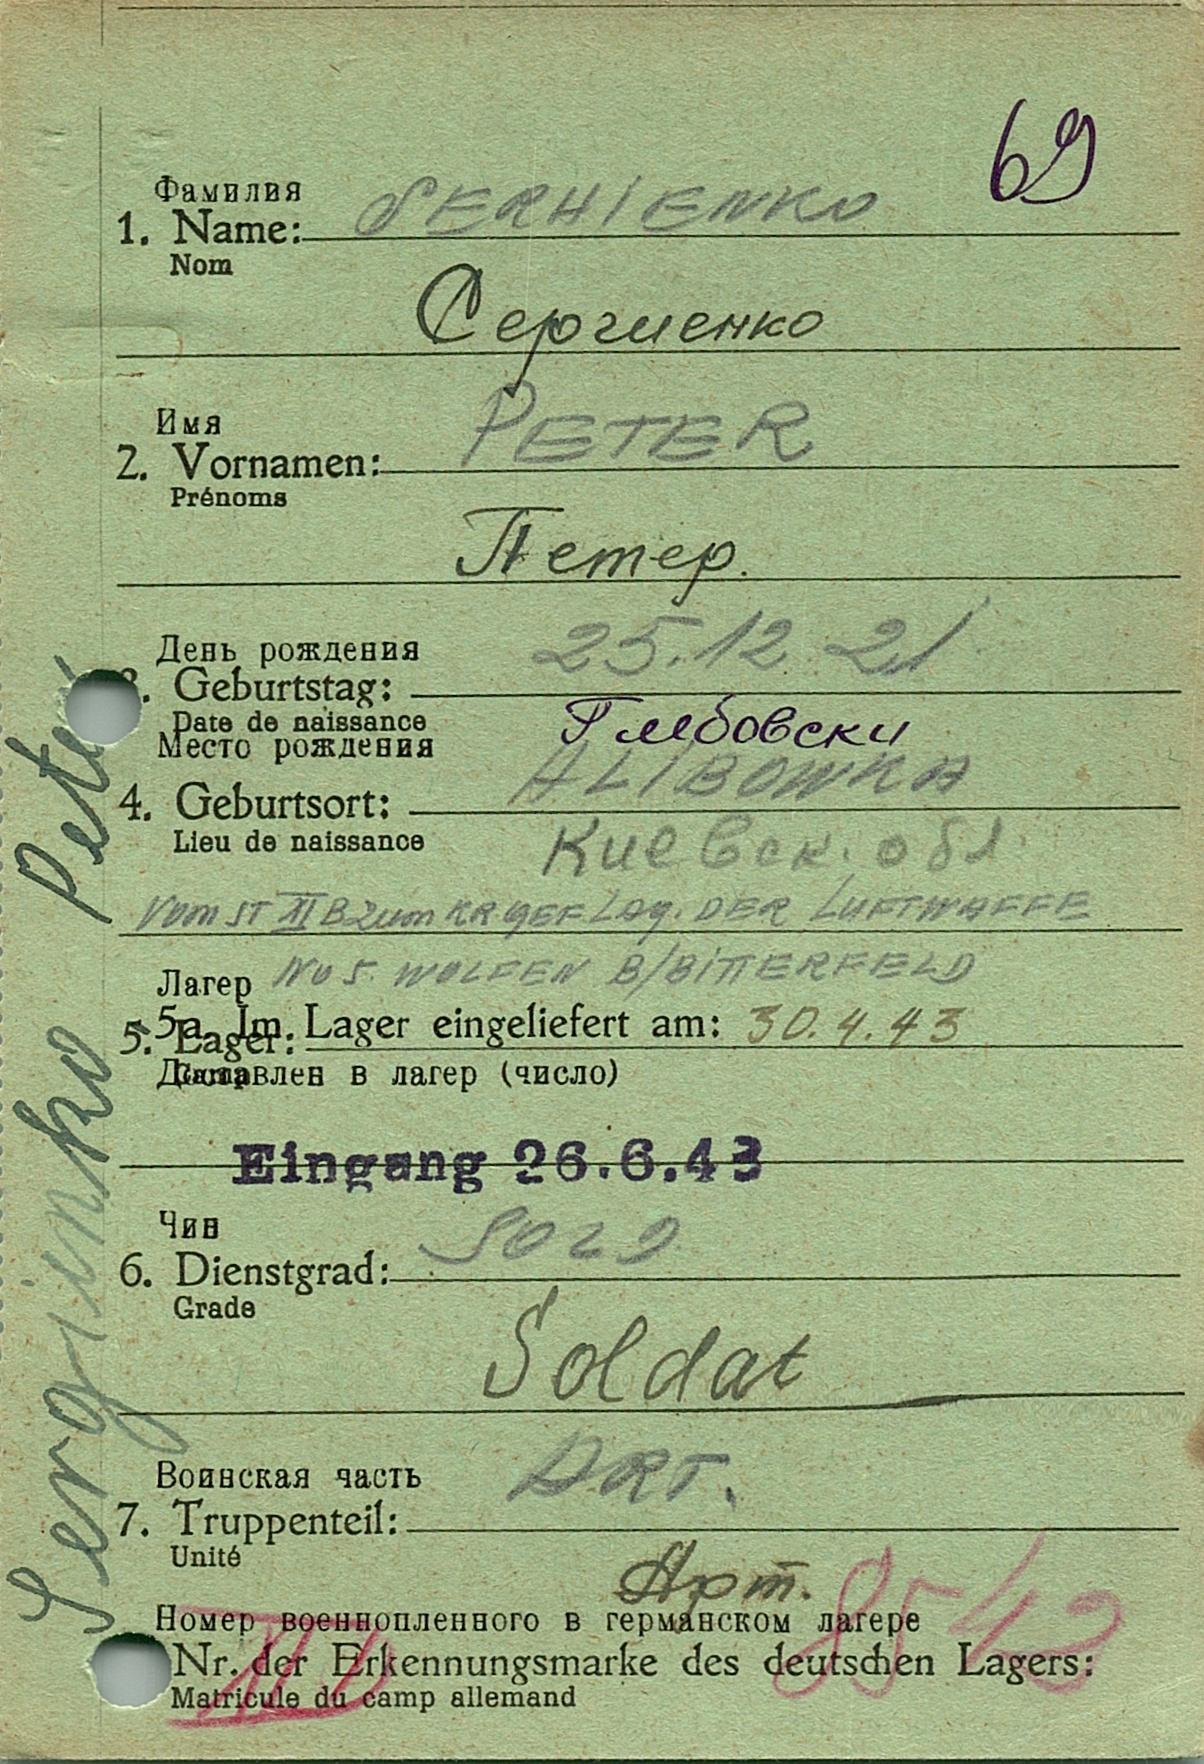 69
Фамилия
1. Name: SERHIENKO
Nom
Сергиенко
Имя
2. Vornamen: PETER
Prénoms
Петер.
День рождения 25.12.21
3. Geburtstag:
Date de naissance Глебовски
Место рождения
4. Geburtsort: ALIBOWKA
Lieu de naissance Киевск. обл.
Vom ST XI B zum KRGEF Lag. DER LUFTWAFFE
Лагер No 5. WOLFEN B/BITTERFELD
5. Lager:
5a. Im Lager eingeliefert am: 30.4.43
Camp
Доставлен в лагер (число)
Eingang 26.6.43
Чин
6. Dienstgrad:
Grade
Soldat
Воинская часть
7. Truppenteil: ART.
Unité
Арт.
Номер военнопленного в германском лагере
Nr. der Erkennungsmarke des deutschen Lagers:
Matricule du camp allemand
Serginko Peter